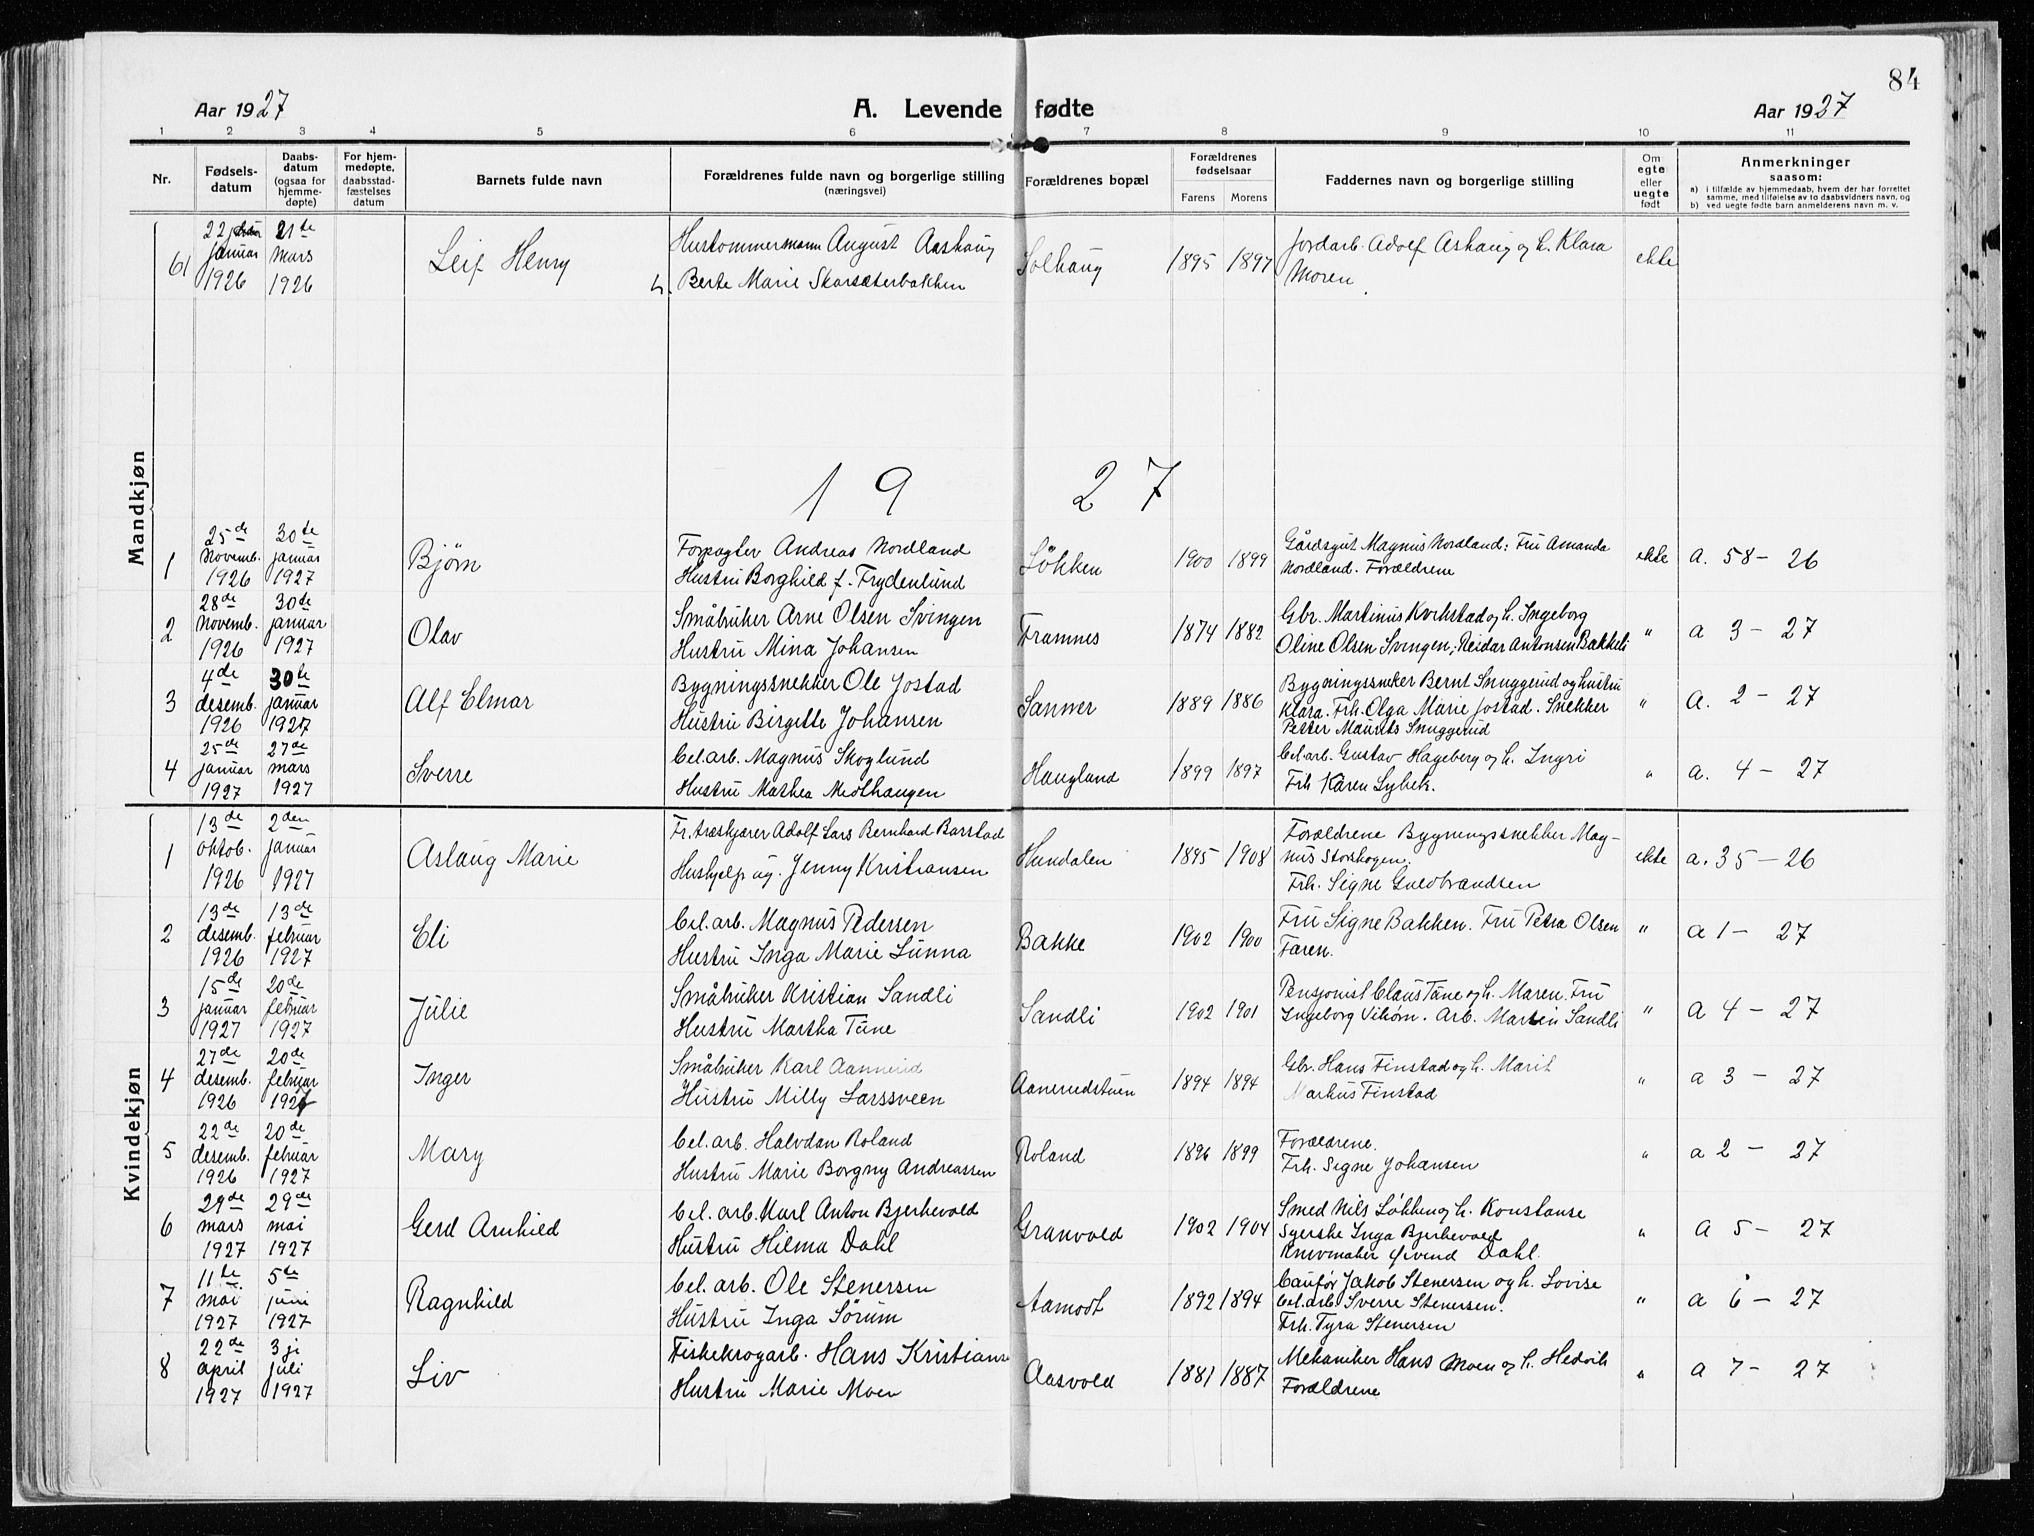 84
Aar 1927 A. Levende fødte Aar 1927
1 2 3 4 5 6 7 8 9 10 11
Nr. Fødsels-datum Daabs-datum (ogsaa for hjemme-døpte) For hjem-medøpte, daabsstad-fæstelses datum Barnets fulde navn Forældrenes fulde navn og borgerlige stilling (næringsvei) Forældrenes bopæl Forældrenes fødselsaar Farens Morens Faddernes navn og borgerlige stilling Om egte eller uegte født Anmerkninger saasom:
a) i tilfælde av hjemmedaab, hvem der har forrettet samme, med tilføielse av to daabsvidners navn, og
b) ved uegte fødte barn anmelderens navn m. v.
Mandkjøn
61 22 januar 1926 21te mars 1926 Leif Henry August Aashaug
h. Berte Marie Skarsæterbakken Solhaug 1895 1897 Jordarb. Adolf Ashaug og h. Klara
Moren. ekte
19 27
1 25de Novemb. 1926 30te januar 1927 Bjørn Forpagter Andreas Nordland
Hustru Borghild f. Frydenlund Løkken 1900 1899 Gårdsgut Magnus Nordland: Fru Amanda
Nordland. Forældrene ekte a. 58 - 26
2 28de Novemb. 1926 30te januar 1927 Olav Småbruker Arne Olsen Svingen
Hustru Mina Johansen Framnes 1874 1882 Gbr. Martinus Kverkstad og h. Ingeborg
Oline Olsen Svingen; Reidar Antonsen Bakkeli " a 3 - 27
3 4de desemb. 1926 30te januar 1927 Alf Elmar Bygningssnekker Ole Jostad
Hustru Birgitte Johansen Sanner 1889 1886 Bygningssneker Bernt Snuggerud og hustru
Klara. Frk. Olga Marie Jostad. Snekker
Petter Maurits Snuggerud " a. 2 - 27
4 25de januar 1927 27de mars 1927 Sverre Cel. arb. Magnus Skoglund
Hustru Mathea Midthaugen Haugland 1899 1897 Cel. arb. Gustav Hageberg og h. Ingri
Frk Karen Lybek. " a. 4 - 27
Kvindekjøn
1 13de oktob. 1926 2den januar 1927 Aslaug Marie Fr. træskjærer Adolf Lars Bernhard Barstad
Hushjelp ug. Jenny Kristiansen Hundalen 1895 1908 Forældrene Bygningssnekker Mag-
nus Storhogen.
Frk. Signe Guldbrandsen ekte a. 35 - 26
2 13de desemb. 1926 13de februar 1927 Eli Cel. arb. Magnus Pedersen
Hustru Inga Marie Lunna Bakke 1902 1900 Fru Signe Bakken. Fru Petra Olsen
Faren. " a 1 - 27
3 15de januar 1927 20de februar 1927 Julie Småbruker Kristian Sandli
Hustru Martha Tune Sandli 1902 1901 Pensjonist Claus Tune og h. Maren. Fru
Ingeborg Vihørn. Arb. Martin Sandli " a 4 - 27
4 27de desemb. 1926 20de februar 1927 Inger Småbruker Karl Aannerud
Hustru Milly Larssveen Aanerudstuen 1894 1894 Gbr. Hans Finstad og h. Marit
Markus Finstad " a 3 - 27
5 22de desemb. 1926 20de februar 1927 Mary Cel. arb. Halvdan Roland
Hustru Marie Borgny Andreassen Roland 1896 1899 Forældrene.
Frk. Signe Johansen " a 2 - 27
6 29de mars 1927 29de mai 1927 Gerd Arnhild Cel. arb. Karl Anton Bjerkevold
Hustru Hilma Dahl Granvold 1902 1904 Smed Nils Løkken og h. Konstanse
Syerske Inga Bjerkevold
Knivmaker Øivind Dahl. " a 5 - 27
7 11te mai 1927 5te juni 1927 Ragnhild Cel. arb. Ole Stenersen
Hustru Inga Sørum Aamodt 1892 1894 Jakob Stenersen og h. Lovise
Cel. arb Sverre Stenersen.
Frk. Tyra Stenersen " a 6 - 27
8 22de april 1927 3je juli 1927 Liv Fiskekrogarb. Hans Kristians
Hustru Marie Moen Aasvold 1881 1887 Mekaniker Hans Moen og h. Hedvik
Forældrene " a 7 - 27